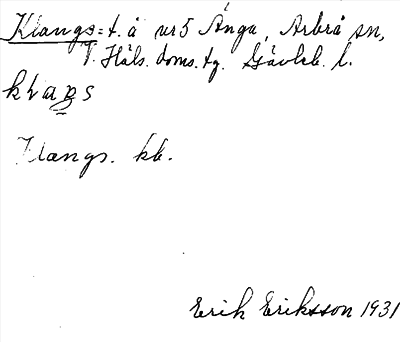 Klangs = t. å nr 5 Änga, Arbrå sn,
V. Häls. doms. tg. Gävleb. l.
klaŋs
Klangs. kb.
Erik Eriksson 1931